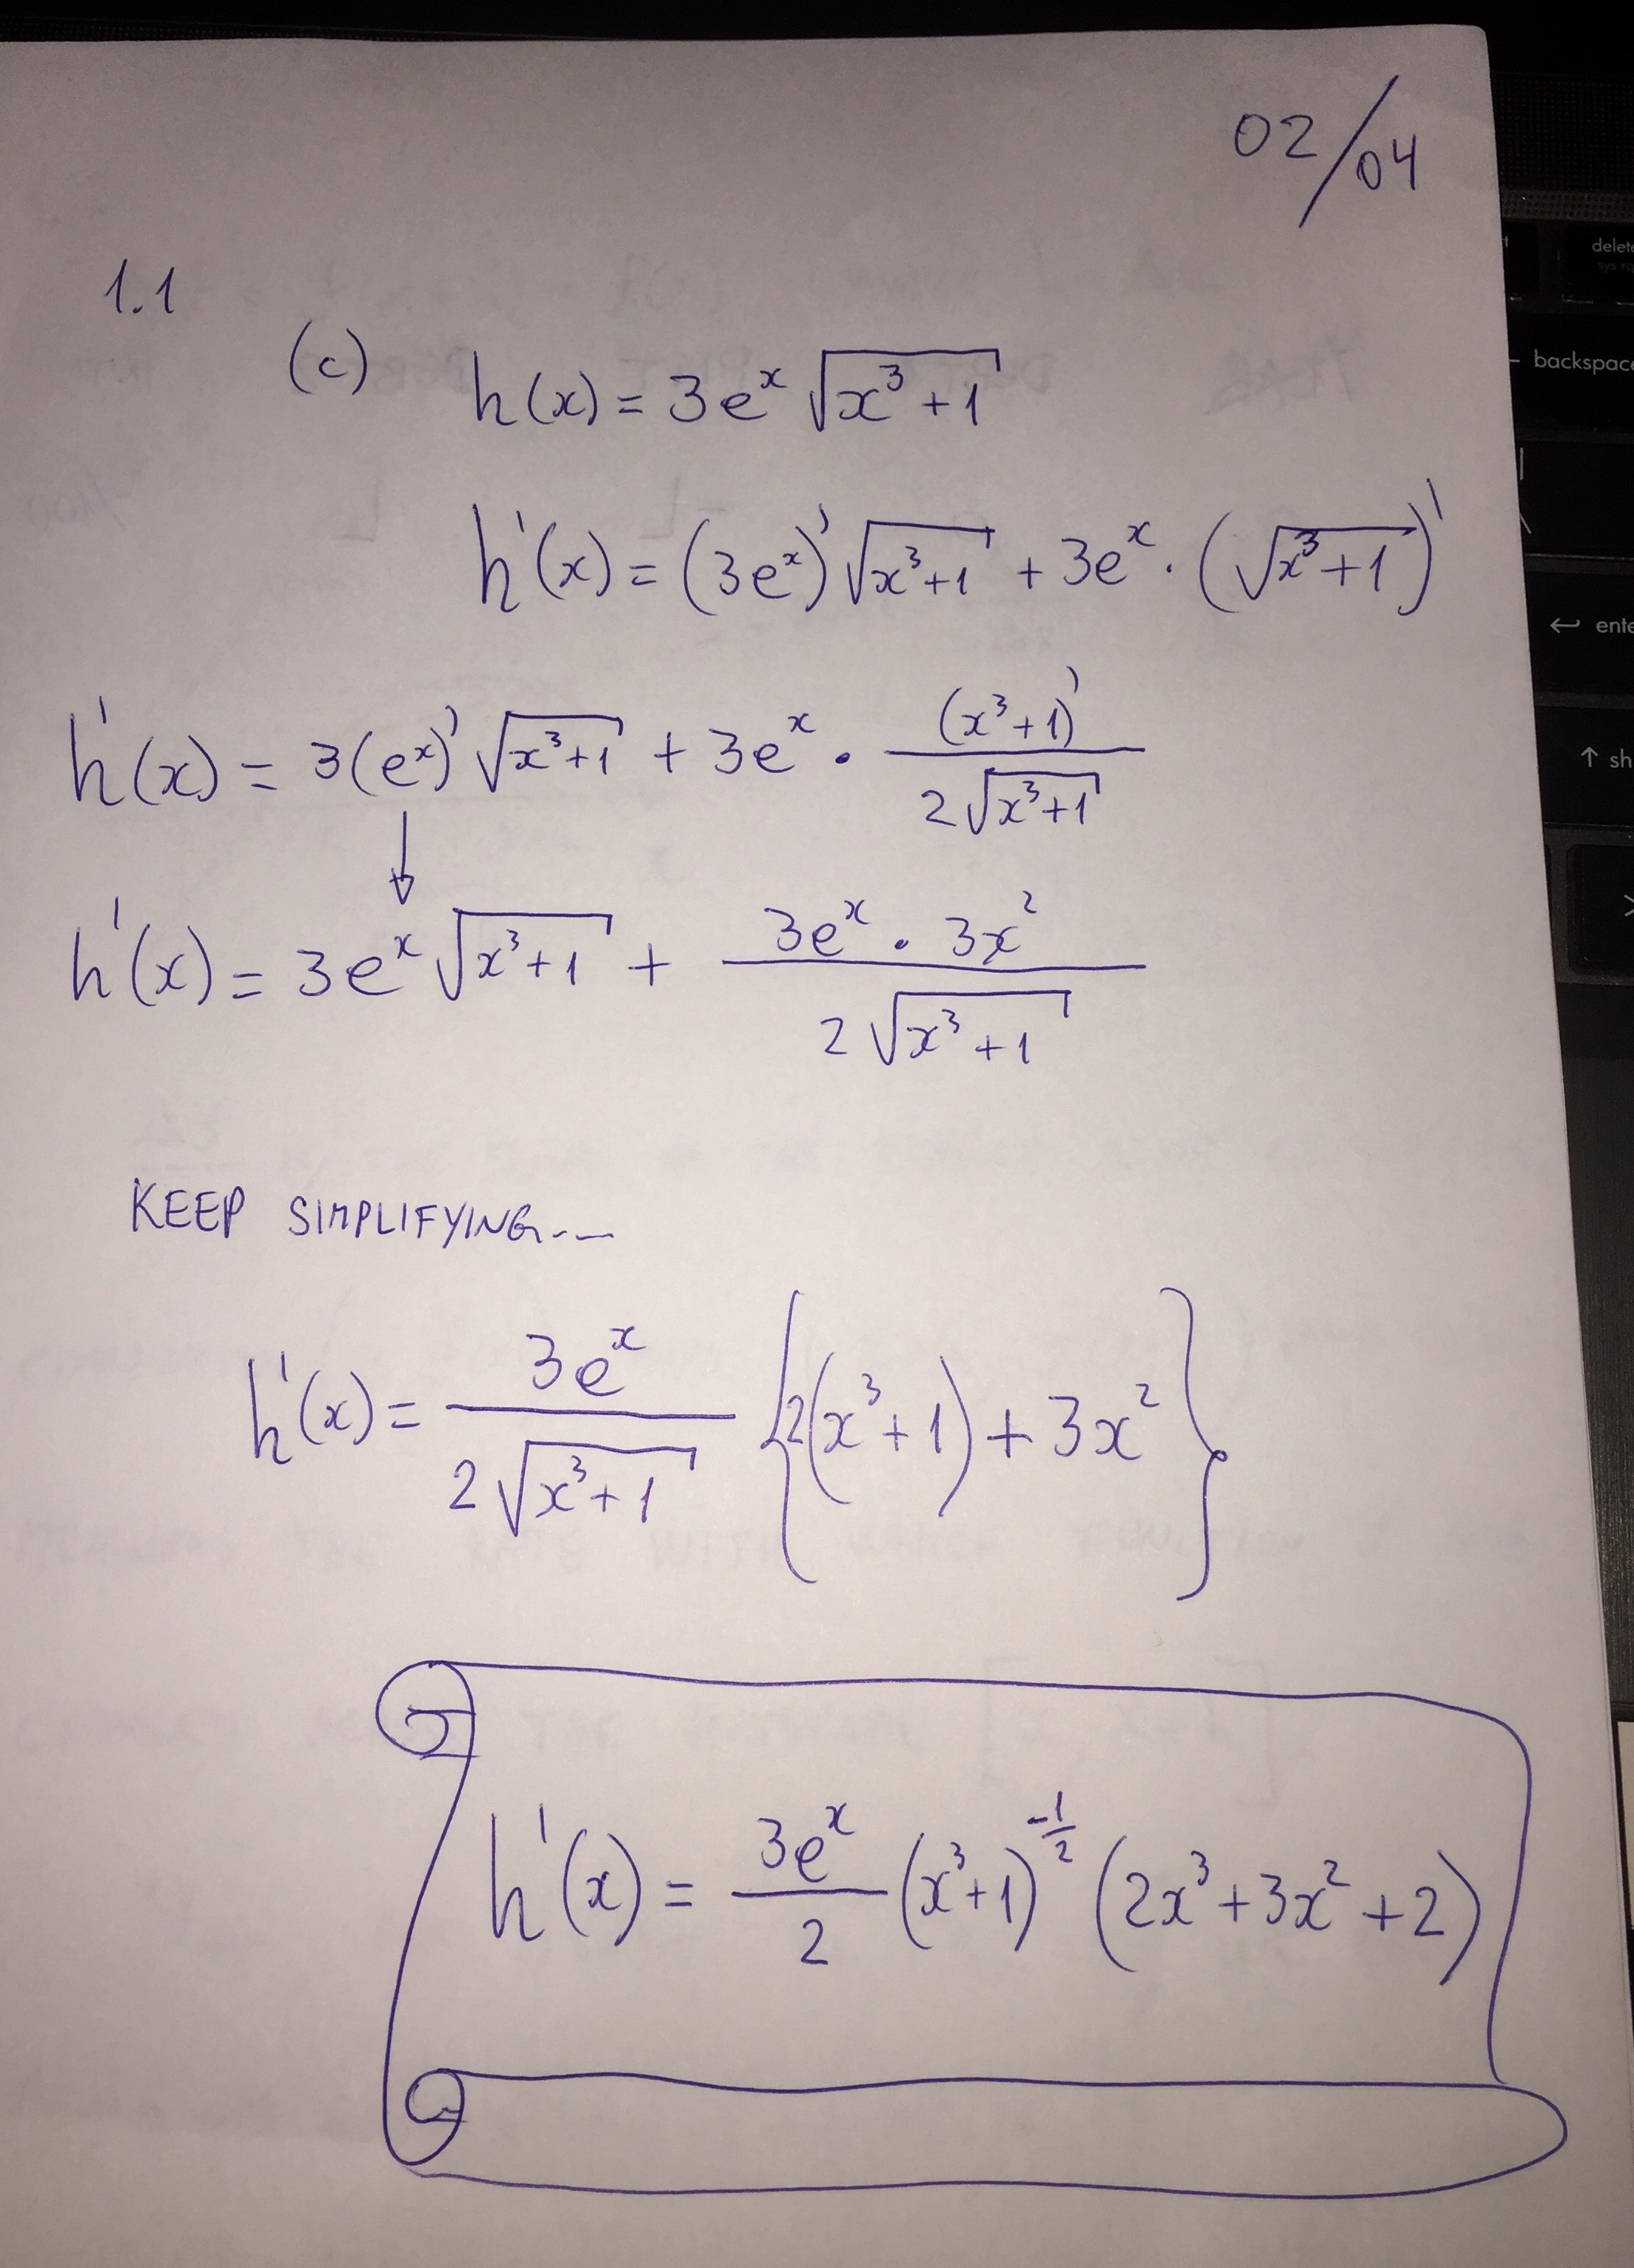 02/04
1.1
(c) h(x) = 3e^x √(x^3+1)
h'(x) = (3e^x)' √(x^3+1) + 3e^x · (√(x^3+1))'
h'(x) = 3(e^x)' √(x^3+1) + 3e^x · (x^3+1)' / 2√(x^3+1)
↓
h'(x) = 3e^x √(x^3+1) + 3e^x · 3x^2 / 2√(x^3+1)
KEEP SIMPLIFYING...
h'(x) = 3e^x / 2√(x^3+1) {2(x^3+1) + 3x^2}
h'(x) = 3e^x / 2 (x^3+1)^(-1/2) (2x^3+3x^2+2)
delete
backspace